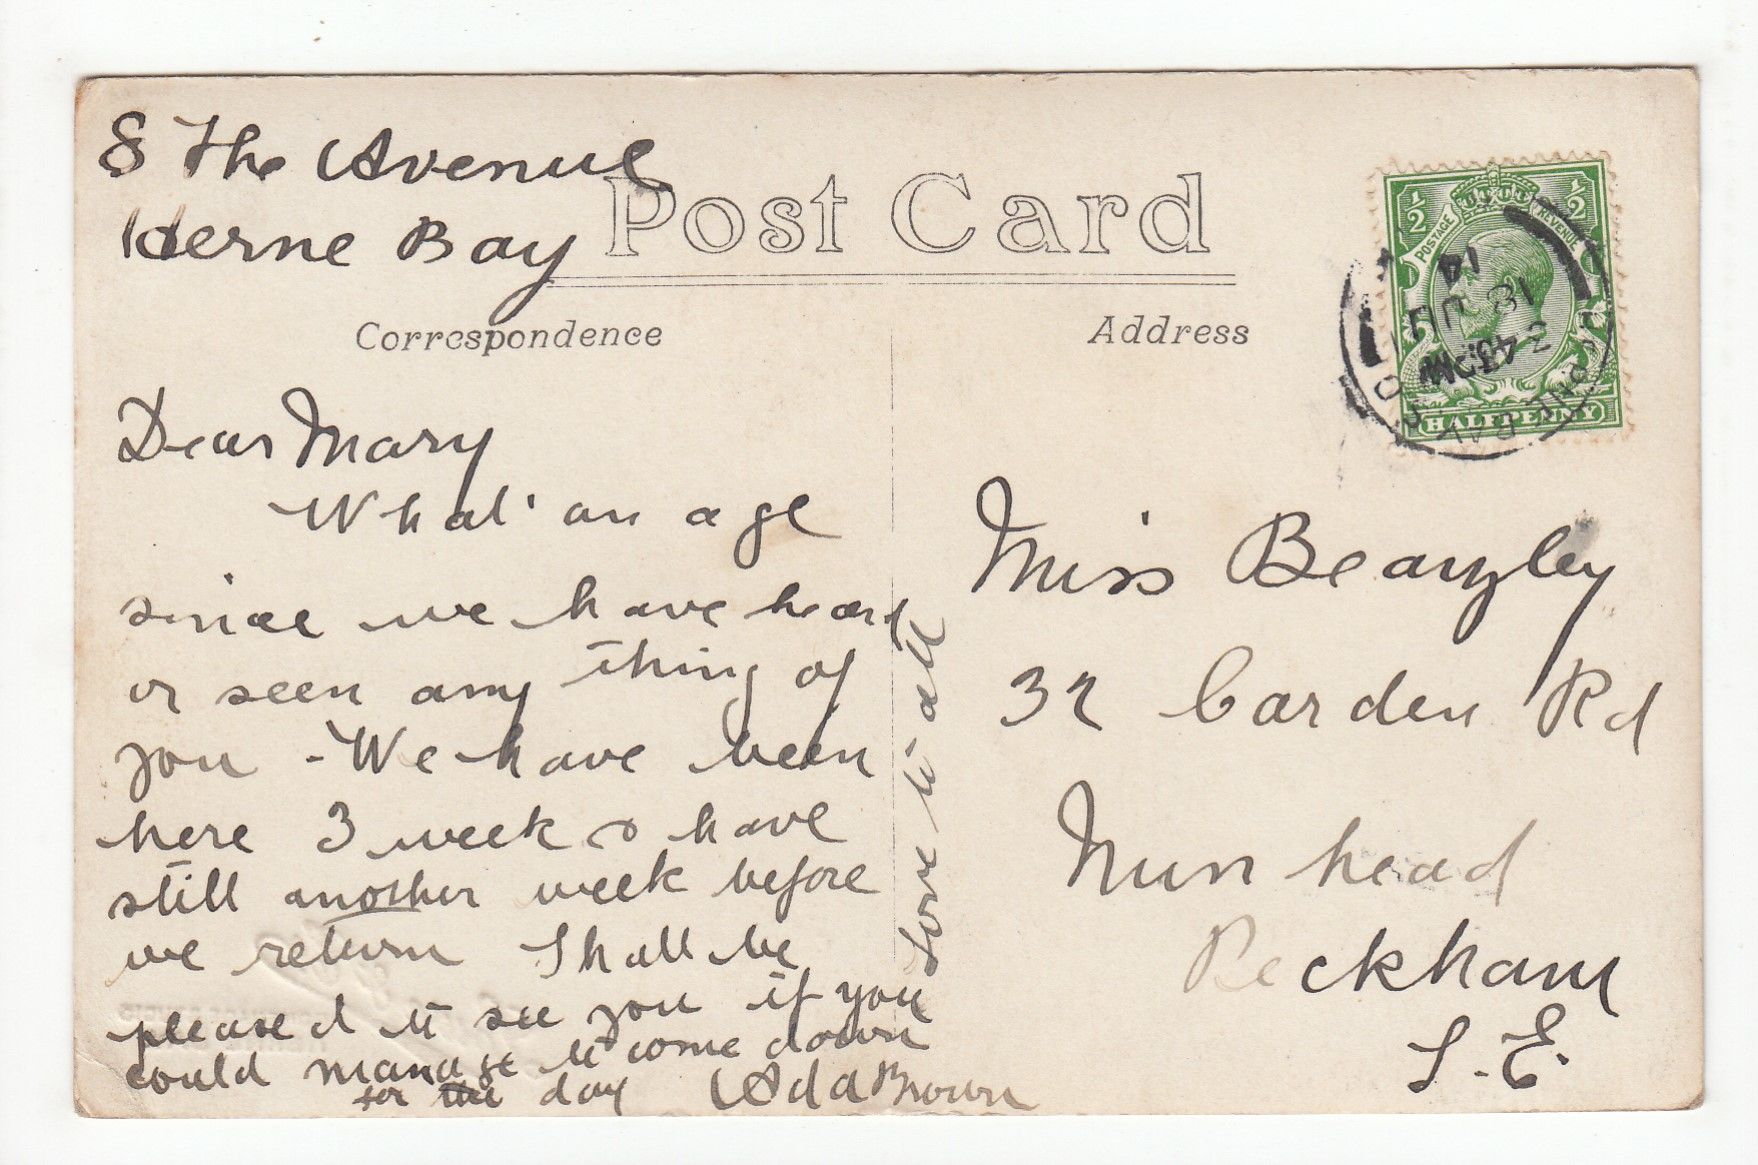 8 The Avenue
Herne Bay
Post Card
Correspondence
Address
Dear Mary
What an age
since we have heard
or seen any thing of
you - We have been
here 3 week & have
still another week before
we return Shall be
pleased to see you if you
could manage to come down
for the day Ada Brown
Love to all
Miss Beazley
32 Carden Rd
Nunhead
Peckham
S.E.
½ ½
POSTAGE REVENUE
HALFPENNY
HERNE BAY
3 45 PM
18 JU
14